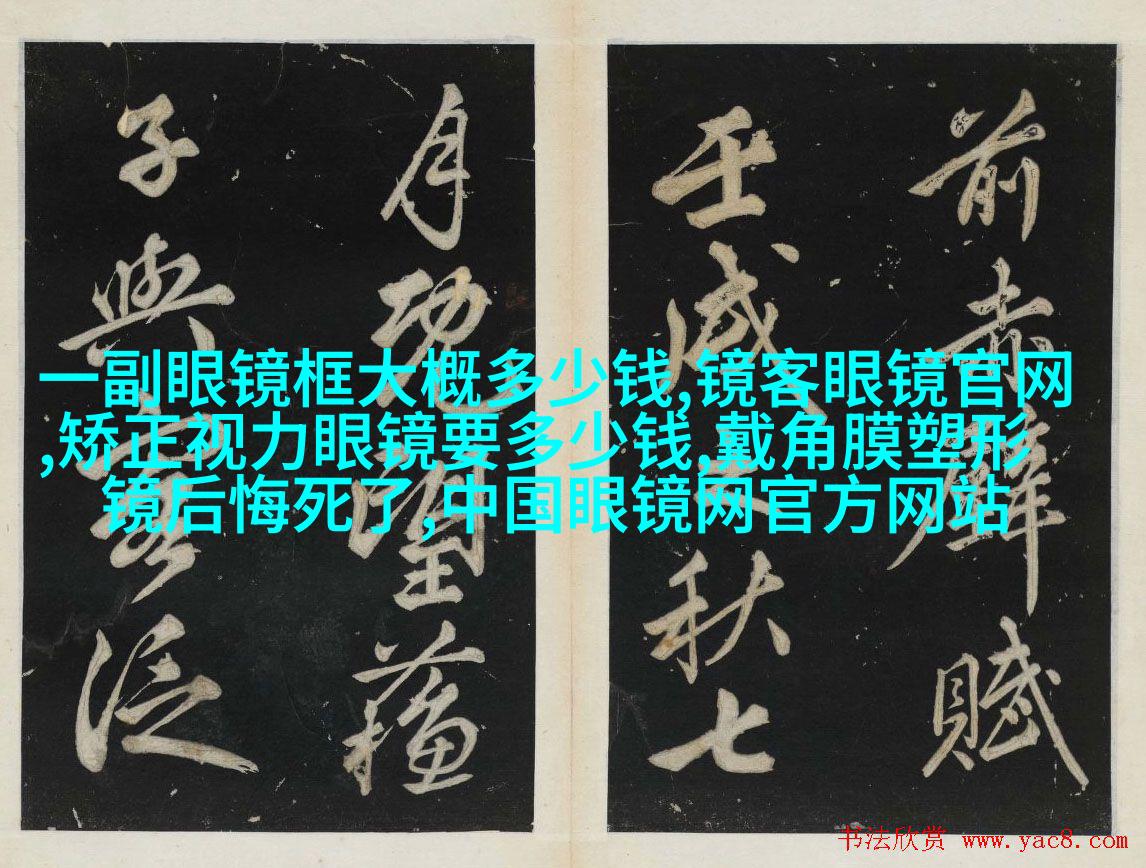 前赤壁賦
壬戌之秋七
月既望蘓
子與客泛
一副眼镜框大概多少钱,镜客眼镜官网
,矫正视力眼镜要多少钱,戴角膜塑形
镜后悔死了,中国眼镜网官方网站
书法欣赏 www.yac8.com